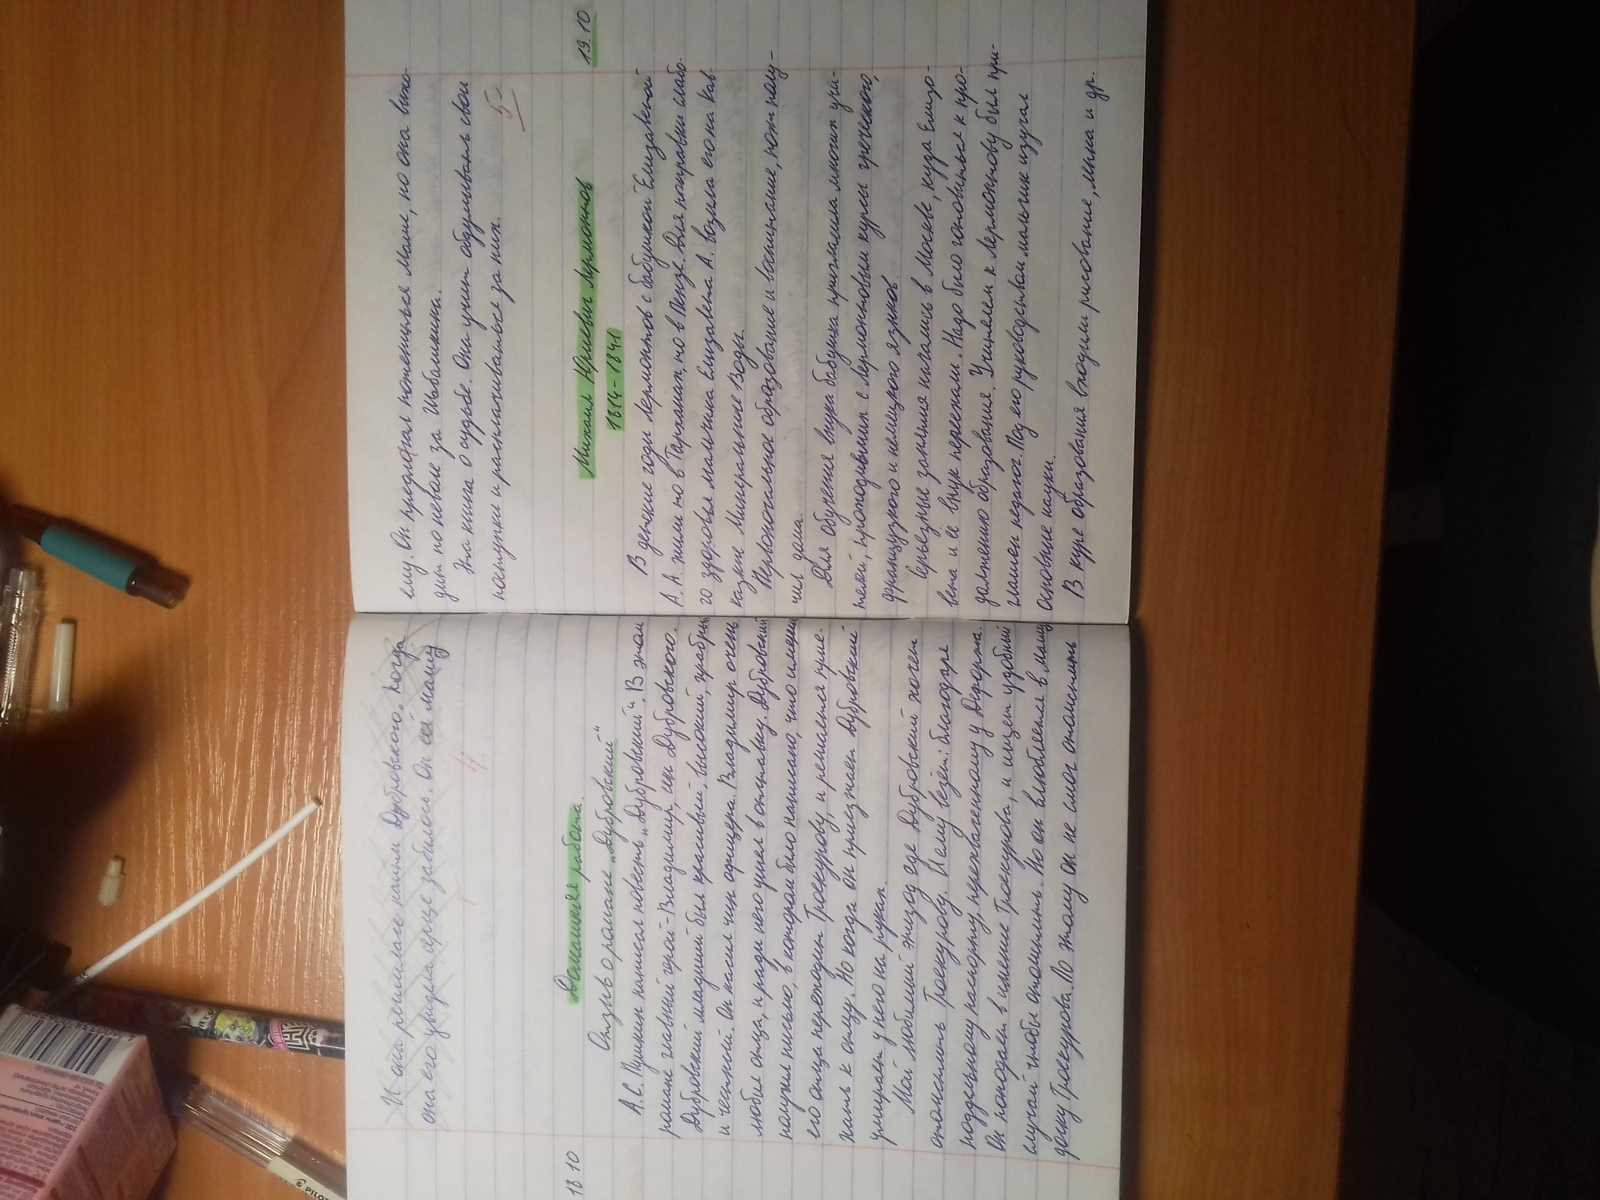 И она решилась найти Дубровского. Когда
она его увидела сердце забилось. Он ей машу
4
18 10
Домашняя работа.
Отзыв о романе „Дубровский“
А.С. Пушкин написал повесть „Дубровский“. В этом
романе главный герой - Владимир, сын Дубровского.
Дубровский младший был красивый, высокий, храбрый
и честный. Он имел чин офицера. Владимир очень
любил отца, и ради него ушёл в отставку. Дубровский
получил письмо, в котором было написано, что имение
его отца переходит Троекурову, и решается прие-
хать к отцу. Но когда он приезжает Дубровский
умирает у него на руках.
Мой любимый эпизод где Дубровский хочет
отомстить Троекурову. И ему везёт: благодаря
поддельному паспорту, перехваченному у Дефоржа.
Он попадает в имение Троекурова, и ищет удобный
случай чтобы отомстить. Но он влюбляется в Машу
дочку Троекурова. По этому он не смог отомстить
ему. Он предлагал пожениться Маши, но она выхо-
дит по неволе за Шабашкина.
Эта книга о судьбе. Она учит обдумывать свои
поступки и расплачиваться за них.
5-
19.10
Михаил Юрьевич Лермонтов
1814-1841
В детские годы Лермонтов с бабушкой Елизаветой
А. А. жили но в Тарханах, но в Пензе. Для поправки слабо-
го здоровья мальчика Елизавета А. возила его на Кав-
казкие Минеральные Воды.
Первоначальное образование и воспитание, поэт полу-
чил дома.
Для обучения внука бабушка пригласила многих учи-
телей, проходивших с Лермонтовым курсы греческого,
французкого и немецкого языков.
Серьёзные занятия начались в Москве, куда Елиза-
вета и её внук переехали. Надо было готовиться к про-
должению образования. Учителем к Лермонтову был при-
глашен педагог. Под его руководством мальчик изучал
основные науки.
В курс образования входили рисование, лепка и др.